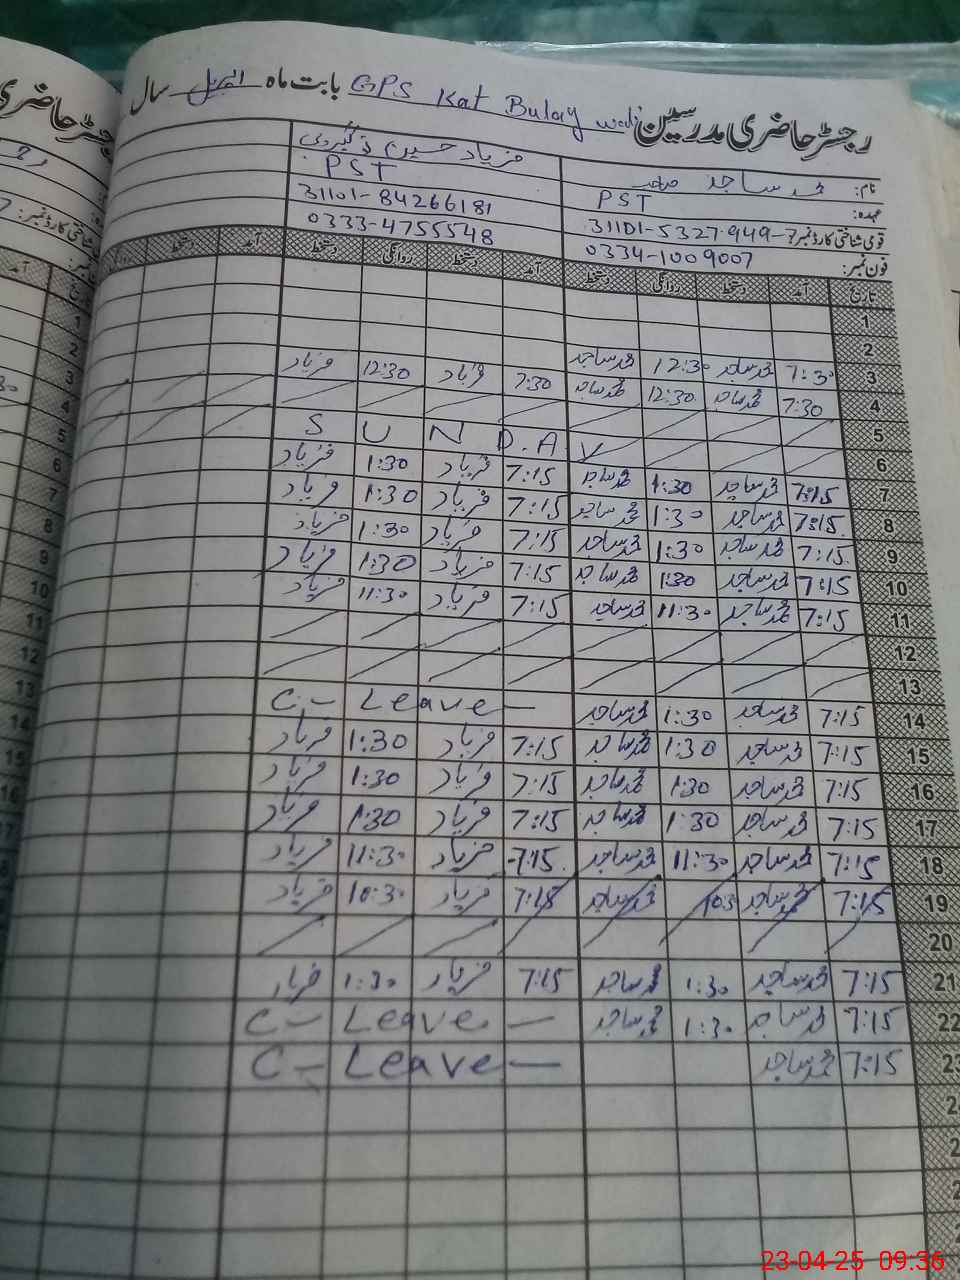 رجسٹر حاضری مدرسین GPS Kat Bulay wali بابت ماہ اپریل سال
نام: محمد ساجد صاحب فریاد حسین
عہدہ: PST PST
قومی شناختی کارڈ نمبر: 31101-5327949-7 31101-84266181
فون نمبر: 0334-1009007 0333-4755548
تاریخ آمد دستخط روانگی دستخط آمد دستخط روانگی دستخط آمد دستخط
1
2
3 7:30 محمد ساجد 12:30 محمد ساجد 7:30 فریاد 12:30 فریاد
4 7:30 محمد ساجد 12:30 محمد ساجد
5
6 S U N D.A.Y
7 7:15 محمد ساجد 1:30 محمد ساجد 7:15 فریاد 1:30 فریاد
8 7:15 محمد ساجد 1:30 محمد ساجد 7:15 فریاد 1:30 فریاد
9 7:15 محمد ساجد 1:30 محمد ساجد 7:15 فریاد 1:30 فریاد
10 7:15 محمد ساجد 1:30 محمد ساجد 7:15 فریاد 1:30 فریاد
11 7:15 محمد ساجد 11:30 محمد ساجد 7:15 فریاد 11:30 فریاد
12
13
14 7:15 محمد ساجد 1:30 محمد ساجد C - Leave -
15 7:15 محمد ساجد 1:30 محمد ساجد 7:15 فریاد 1:30 فریاد
16 7:15 محمد ساجد 1:30 محمد ساجد 7:15 فریاد 1:30 فریاد
17 7:15 محمد ساجد 1:30 محمد ساجد 7:15 فریاد 1:30 فریاد
18 7:15 محمد ساجد 11:30 محمد ساجد 7:15 فریاد 11:30 فریاد
19 7:15 محمد ساجد محمد ساجد 7:15 فریاد 10:30 فریاد
20
21 7:15 محمد ساجد 1:30 محمد ساجد 7:15 فریاد 1:30 فریاد
22 7:15 محمد ساجد 1:30 محمد ساجد C - Leave -
23 7:15 محمد ساجد C - Leave -
23-04-25 09:36